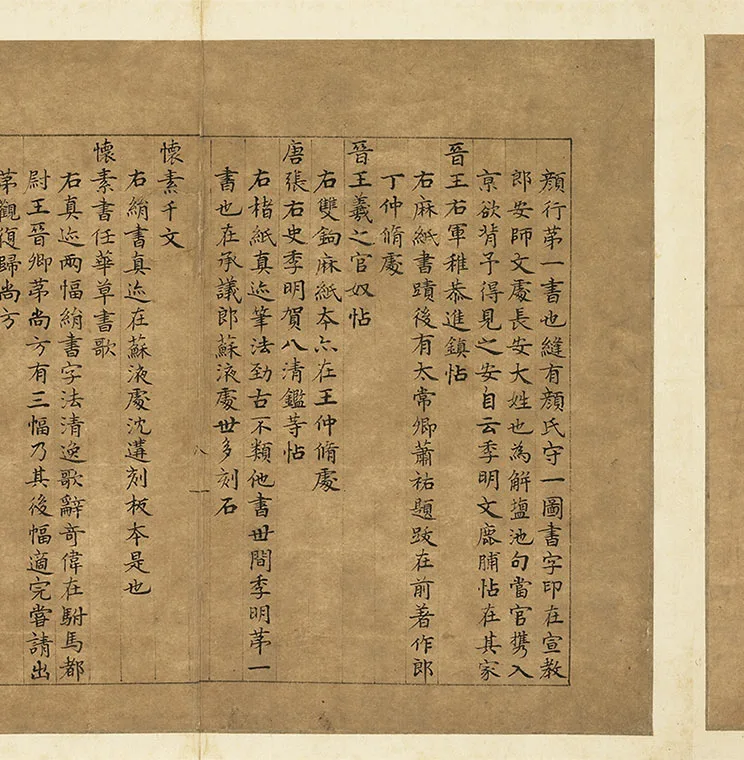 顔行苐一書也縫有顔氏守一圖書字印在宣教
郎安師文處長安大姓也為解塩池句當官携入
京欲背予得見之安自云季明文鹿脯帖在其家
晉王右軍稚恭進鎮帖
右麻紙書蹟後有太常卿蕭祐題跋在前著作郎
丁仲脩處
晉王羲之官奴帖
右雙鉤麻紙本亦在王仲脩處
唐張右史季明賀八清鑑等帖
右楮紙真迹筆法勁古不類他書世間季明苐一
書也在承議郎蘇液處世多刻石
八
一
懷素千文
右絹書真迹在蘇液處沈遘刻板本是也
懷素書任華草書歌
右真迹兩幅絹書字法清逸歌辭竒偉在駙馬都
尉王晉卿苐尚方有三幅乃其後幅適完嘗請出
苐觀復歸尚方